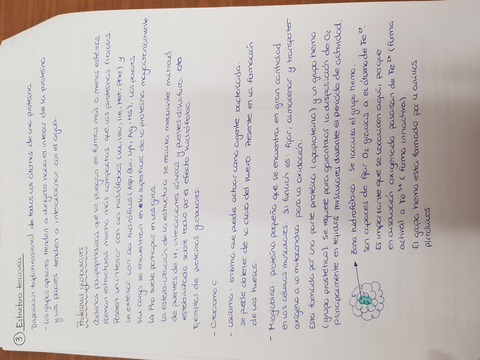 ③ Estructura terciaria
Disposición tridimensional de todos los átomos de una proteína
- Los grupos apolares tienden a dirigirse hacia el interior de la proteína
y los polares tienden a interaccionar con el agua.
Proteínas globulares
Cadenas polipeptídicas que se pliegan en forma más o menos esférica
Forman estructuras mucho más compactas que las proteínas fibrosas.
Poseen un interior con aa hidrófobos (Val, Leu, Ile, Met, Phe) y
un exterior con aa hidrófilos (Asp, Glu, Lys, Arg, His). Los polares
sin carga se encuentran en la superficie de la proteína mayoritariamente
La Pro suele participar en los giros.
La estabilización de la estructura se realiza mediante multitud
de puentes de H, interacciones iónicas y puentes disulfuro. Está
estabilizada sobre todo por el efecto hidrofóbico.
Ejemplos de proteínas globulares:
- Citocromo C
- Lisozima: enzima que puede actuar como agente bactericida
se puede obtener de la clara del huevo. Presente en la formación
de los huesos.
- Mioglobina: proteína pequeña que se encuentra en gran cantidad
en las células musculares. Su función es fijar, almacenar y transportar
oxígeno a la mitocondria para la oxidación.
Está formada por una parte proteica (apoproteína) y un grupo hemo
(grupo prostético). Se requiere para garantizar la disposición de O₂
principalmente en tejidos musculares durante el período de actividad
Zona hidrofóbica: se localiza el grupo hemo.
Son capaces de fijar O₂ gracias a el átomo de Fe²⁺.
Es importante que se encuentren aquí, porque
en disolución oxigenada pasarían de Fe²⁺ (forma
activa) a Fe³⁺ (forma inactiva).
El grupo hemo está formado por 4 anillos
pirrólicos